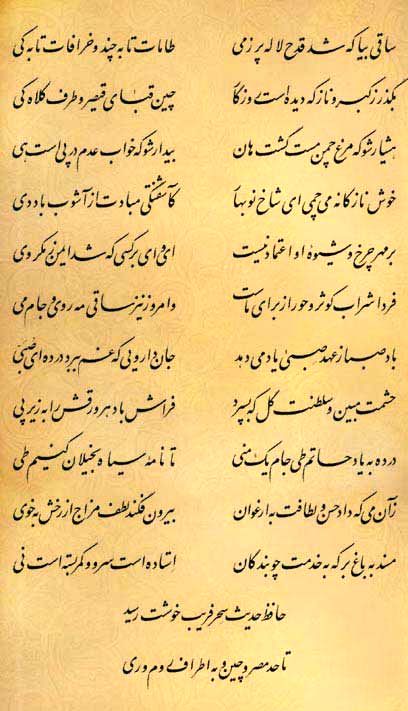 ساقی بیا که شد قدح لاله پر ز می طامات تا به چند و خرافات تا به کی
بگذر ز کبر و ناز که دیده است روزگار چین قبای قیصر و طرف کلاه کی
هشیار شو که مرغ چمن مست گشت هان بیدار شو که خواب عدم در پی است هی
خوش نازکانه می‌چمی ای شاخ نوبهار کآشفتگی مبادت از آشوب باد دی
بر مهر چرخ و شیوه او اعتماد نیست ای وای بر کسی که شد ایمن ز مکر وی
فردا شراب کوثر و حور از برای ماست و امروز نیز ساقی مه روی و جام می
باد صبا ز عهد صبی یاد می‌دهد جان دارویی که غم ببرد در ده ای صبی
حشمت مبین و سلطنت گل که بسپرد فراش باد هر ورقش را به زیر پی
درده به یاد حاتم طی جام یک منی تا نامه سیاه بخیلان کنیم طی
زآن می که داد حسن و لطافت به ارغوان بیرون فکند لطف مزاج از رخش به خوی
مسند به باغ بر که به خدمت چو بندگان استاده است سرو و کمر بسته است نی
حافظ حدیث سحرفریب خوشت رسید
تا حد مصر و چین و به اطراف روم و ری